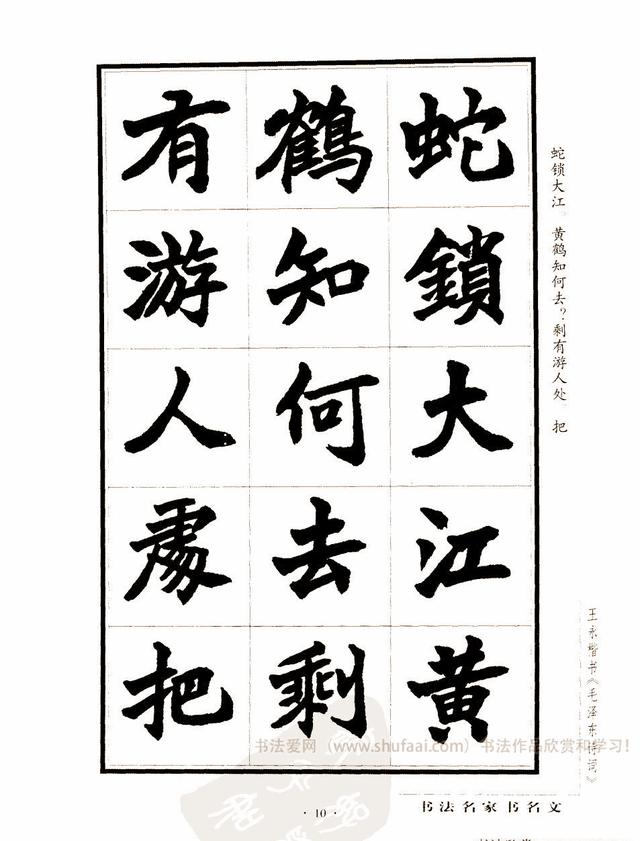 蛇鎖大江黄
鹤知何去剩
有游人處把
蛇锁大江 黄鹤知何去?剩有游人处 把
王永楷书《毛泽东诗词》
书法爱网(www.shufaai.com)书法作品欣赏和学习!
书法名家书名文
·10·